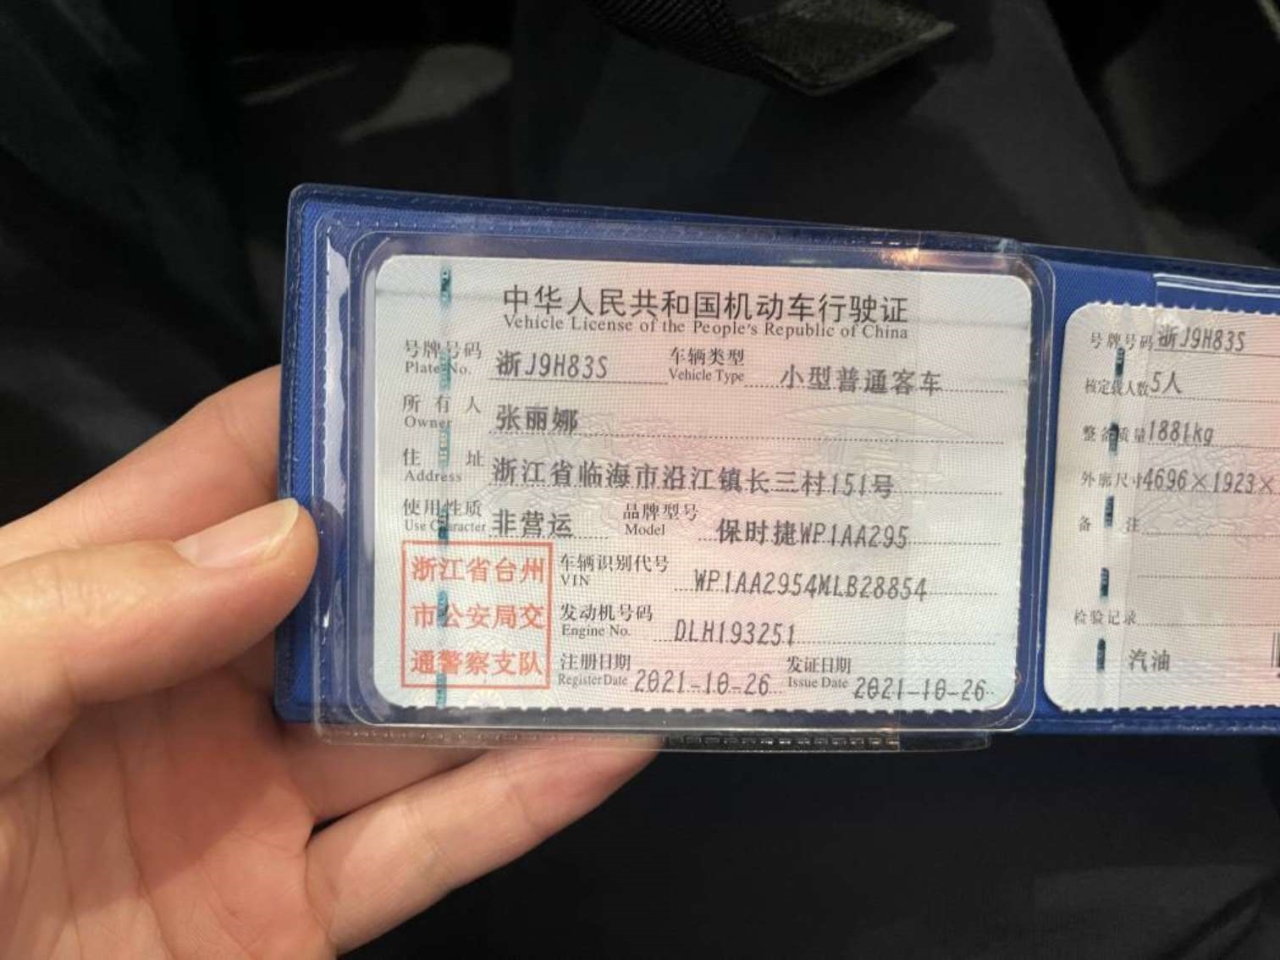 中华人民共和国机动车行驶证
Vehicle License of the People's Republic of China
号牌号码 浙J9H83S 车辆类型 小型普通客车
Plate No. Vehicle Type
所有人 张丽娜
Owner
住址 浙江省临海市沿江镇长三村151号
Address
使用性质 非营运 品牌型号 保时捷WP1AA295
Use Character Model
浙江省台州
市公安局交
通警察支队
车辆识别代号 WP1AA2954MLB28854
VIN
发动机号码 DLH193251
Engine No.
注册日期 2021-10-26 发证日期 2021-10-26
Register Date Issue Date
号牌号码 浙J9H83S
核定载人数 5人
整备质量 1881kg
外廓尺寸 4696×1923×
备注
检验记录
汽油